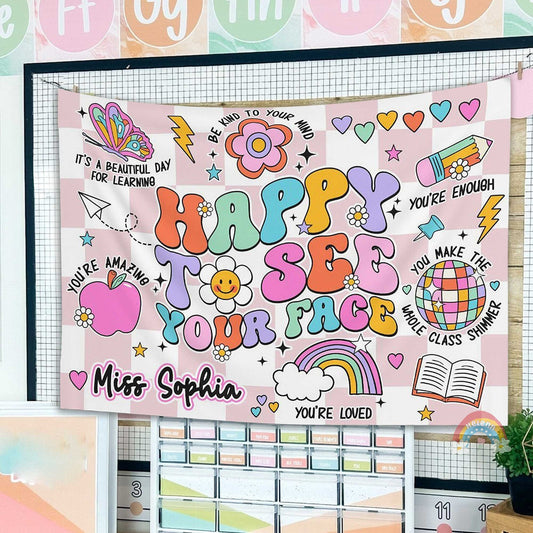 Ff
Gg
BE KIND TO YOUR MIND
IT'S A BEAUTIFUL DAY
FOR LEARNING
YOU'RE ENOUGH
HAPPY
TO SEE
YOUR FACE
YOU'RE AMAZING
YOU MAKE THE
WHOLE CLASS SHIMMER
Miss Sophia
YOU'RE LOVED
3
14